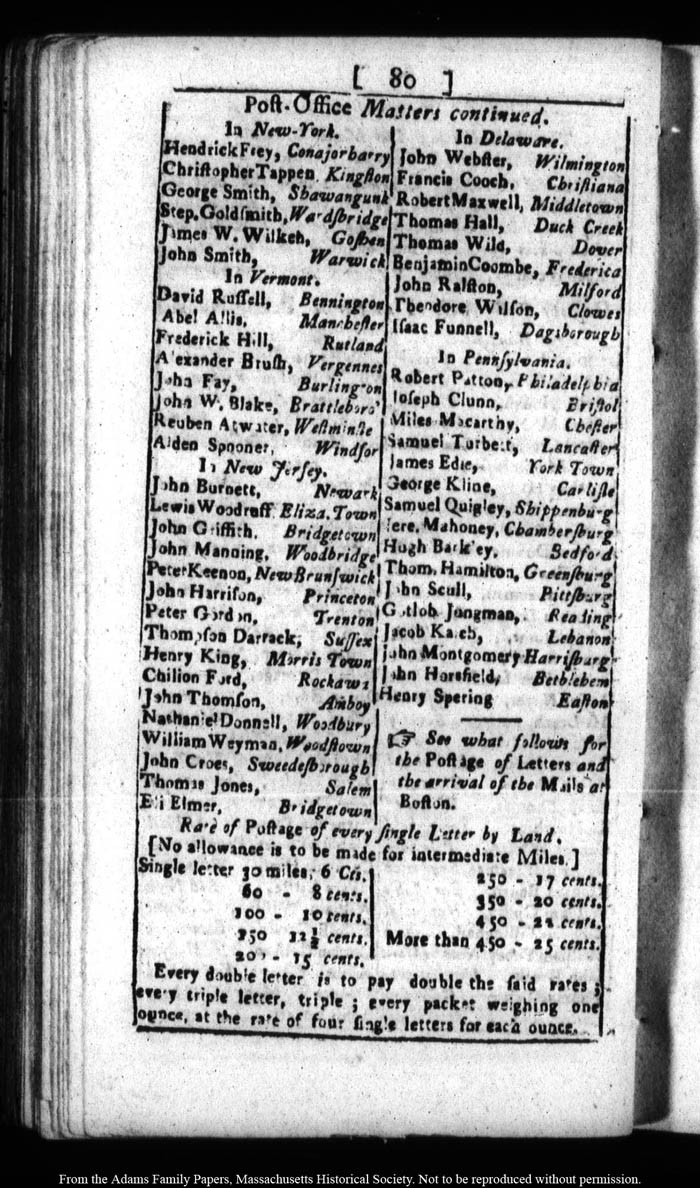 [ 80 ]
Poſt-Office Matters continued.
In New-York.
Hendrick Frey, Conajorharry
Chriſtopher Tappen, Kingſton
George Smith, Shawangunk
Step. Goldſmith, Wardſbridge
James W. Wilken, Goſhen
John Smith, Warwick
In Vermont.
David Ruſſell, Bennington
Abel Allis, Mancheſter
Frederick Hill, Rutland
Alexander Bruſh, Vergennes
John Fay, Burlington
John W. Blake, Brattleboro'
Reuben Atwater, Weſtminſte
Alden Spooner, Windſor
In New Jerſey.
John Burnett, Newark
Lewis Woodruff, Eliza. Town
John Griffith, Bridgetown
John Manning, Woodbridge
Peter Keenon, New Brunſwick
John Harriſon, Princeton
Peter Gordon, Trenton
Thompſon Darrack, Suſſex
Henry King, Morris Town
Chilion Ford, Rockawa
John Thomſon, Amboy
Nathaniel Donnell, Woodbury
William Weyman, Woodſtown
John Croes, Sweedeſborough
Thomas Jones, Salem
Eli Elmer, Bridgetown
In Delaware.
John Webſter, Wilmington
Francis Cooch, Chriſtiana
Robert Maxwell, Middletown
Thomas Hall, Duck Creek
Thomas Wild, Dover
Benjamin Coombe, Frederica
John Ralſton, Milford
Theodore Wilſon, Clowes
Iſaac Funnell, Dagsborough
In Pennſylvania.
Robert Patton, Philadelphia
Joſeph Clunn, Briſtol
Miles Macarthy, Cheſter
Samuel Turbett, Lancaſter
James Edie, York Town
George Kline, Carliſle
Samuel Quigley, Shippenburg
Jere. Mahoney, Chamberſburg
Hugh Barkley, Bedford
Thom. Hamilton, Greenſburg
John Scull, Pittſburg
Gotlob Jungman, Reading
Jacob Lebanon
John Montgomery Harriſburg
John Horsfield, Bethlehem
Henry Spering Eaſton
☞ See what follows for
the Poſtage of Letters and
the arrival of the Mails at
Boſton.
Rate of Poſtage of every ſingle Letter by Land.
[No allowance is to be made for intermediate Miles.]
Single letter 30 miles, 6 Cts.
60 - 8 cents.
100 - 10 cents.
150 12½ cents.
200 - 15 cents.
250 - 17 cents.
350 - 20 cents.
450 - 22 cents.
More than 450 - 25 cents.
Every double letter is to pay double the ſaid rates ;
every triple letter, triple ; every packet weighing one
ounce, at the rate of four ſingle letters for each ounce.
From the Adams Family Papers, Massachusetts Historical Society. Not to be reproduced without permission.